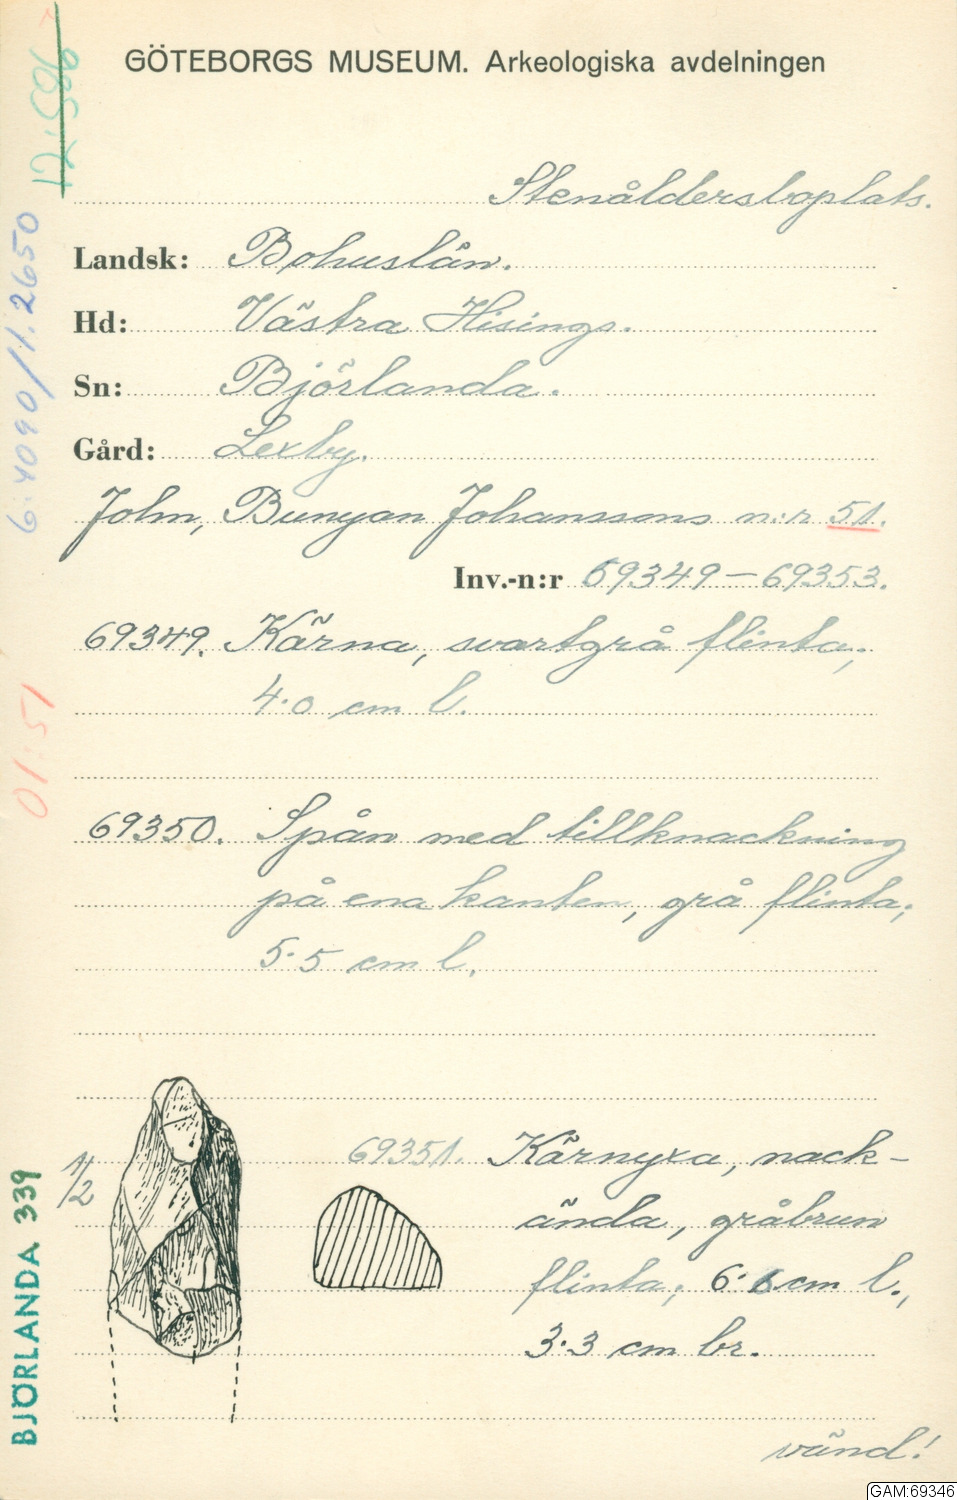 GÖTEBORGS MUSEUM. Arkeologiska avdelningen
12:586
Stenåldersboplats.
Landsk: Bohuslän.
Hd: Västra Hisings.
Sn: Björlanda.
Gård: Lexby.
John, Bunyan Johanssons n:r 51.
Inv.-n:r 69349-69353.
69349. Kärna, svartgrå flinta;
4.0 cm l.
69350. Spån med tillknackning
på ena kanten, grå flinta;
5.5 cm l.
1/2
69351. Kärnyxa, nack-
ända, gråbrun
flinta; 6.6 cm l.,
3.3 cm br.
vänd!
6:4090/11.2650
01:51
BJÖRLANDA 339
GAM:69346